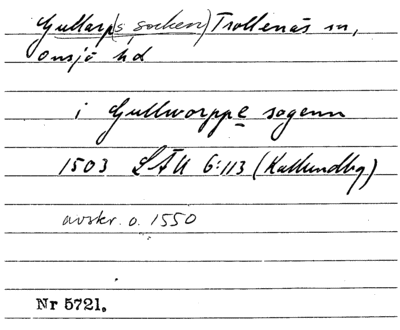 Gullarp (s socken) Trollenäs sn,
Onsjö hd
i Gullworppe sogenn
1503 LÄU 6:113 (Kallundbg)
avskr. o. 1550
Nr 5721.